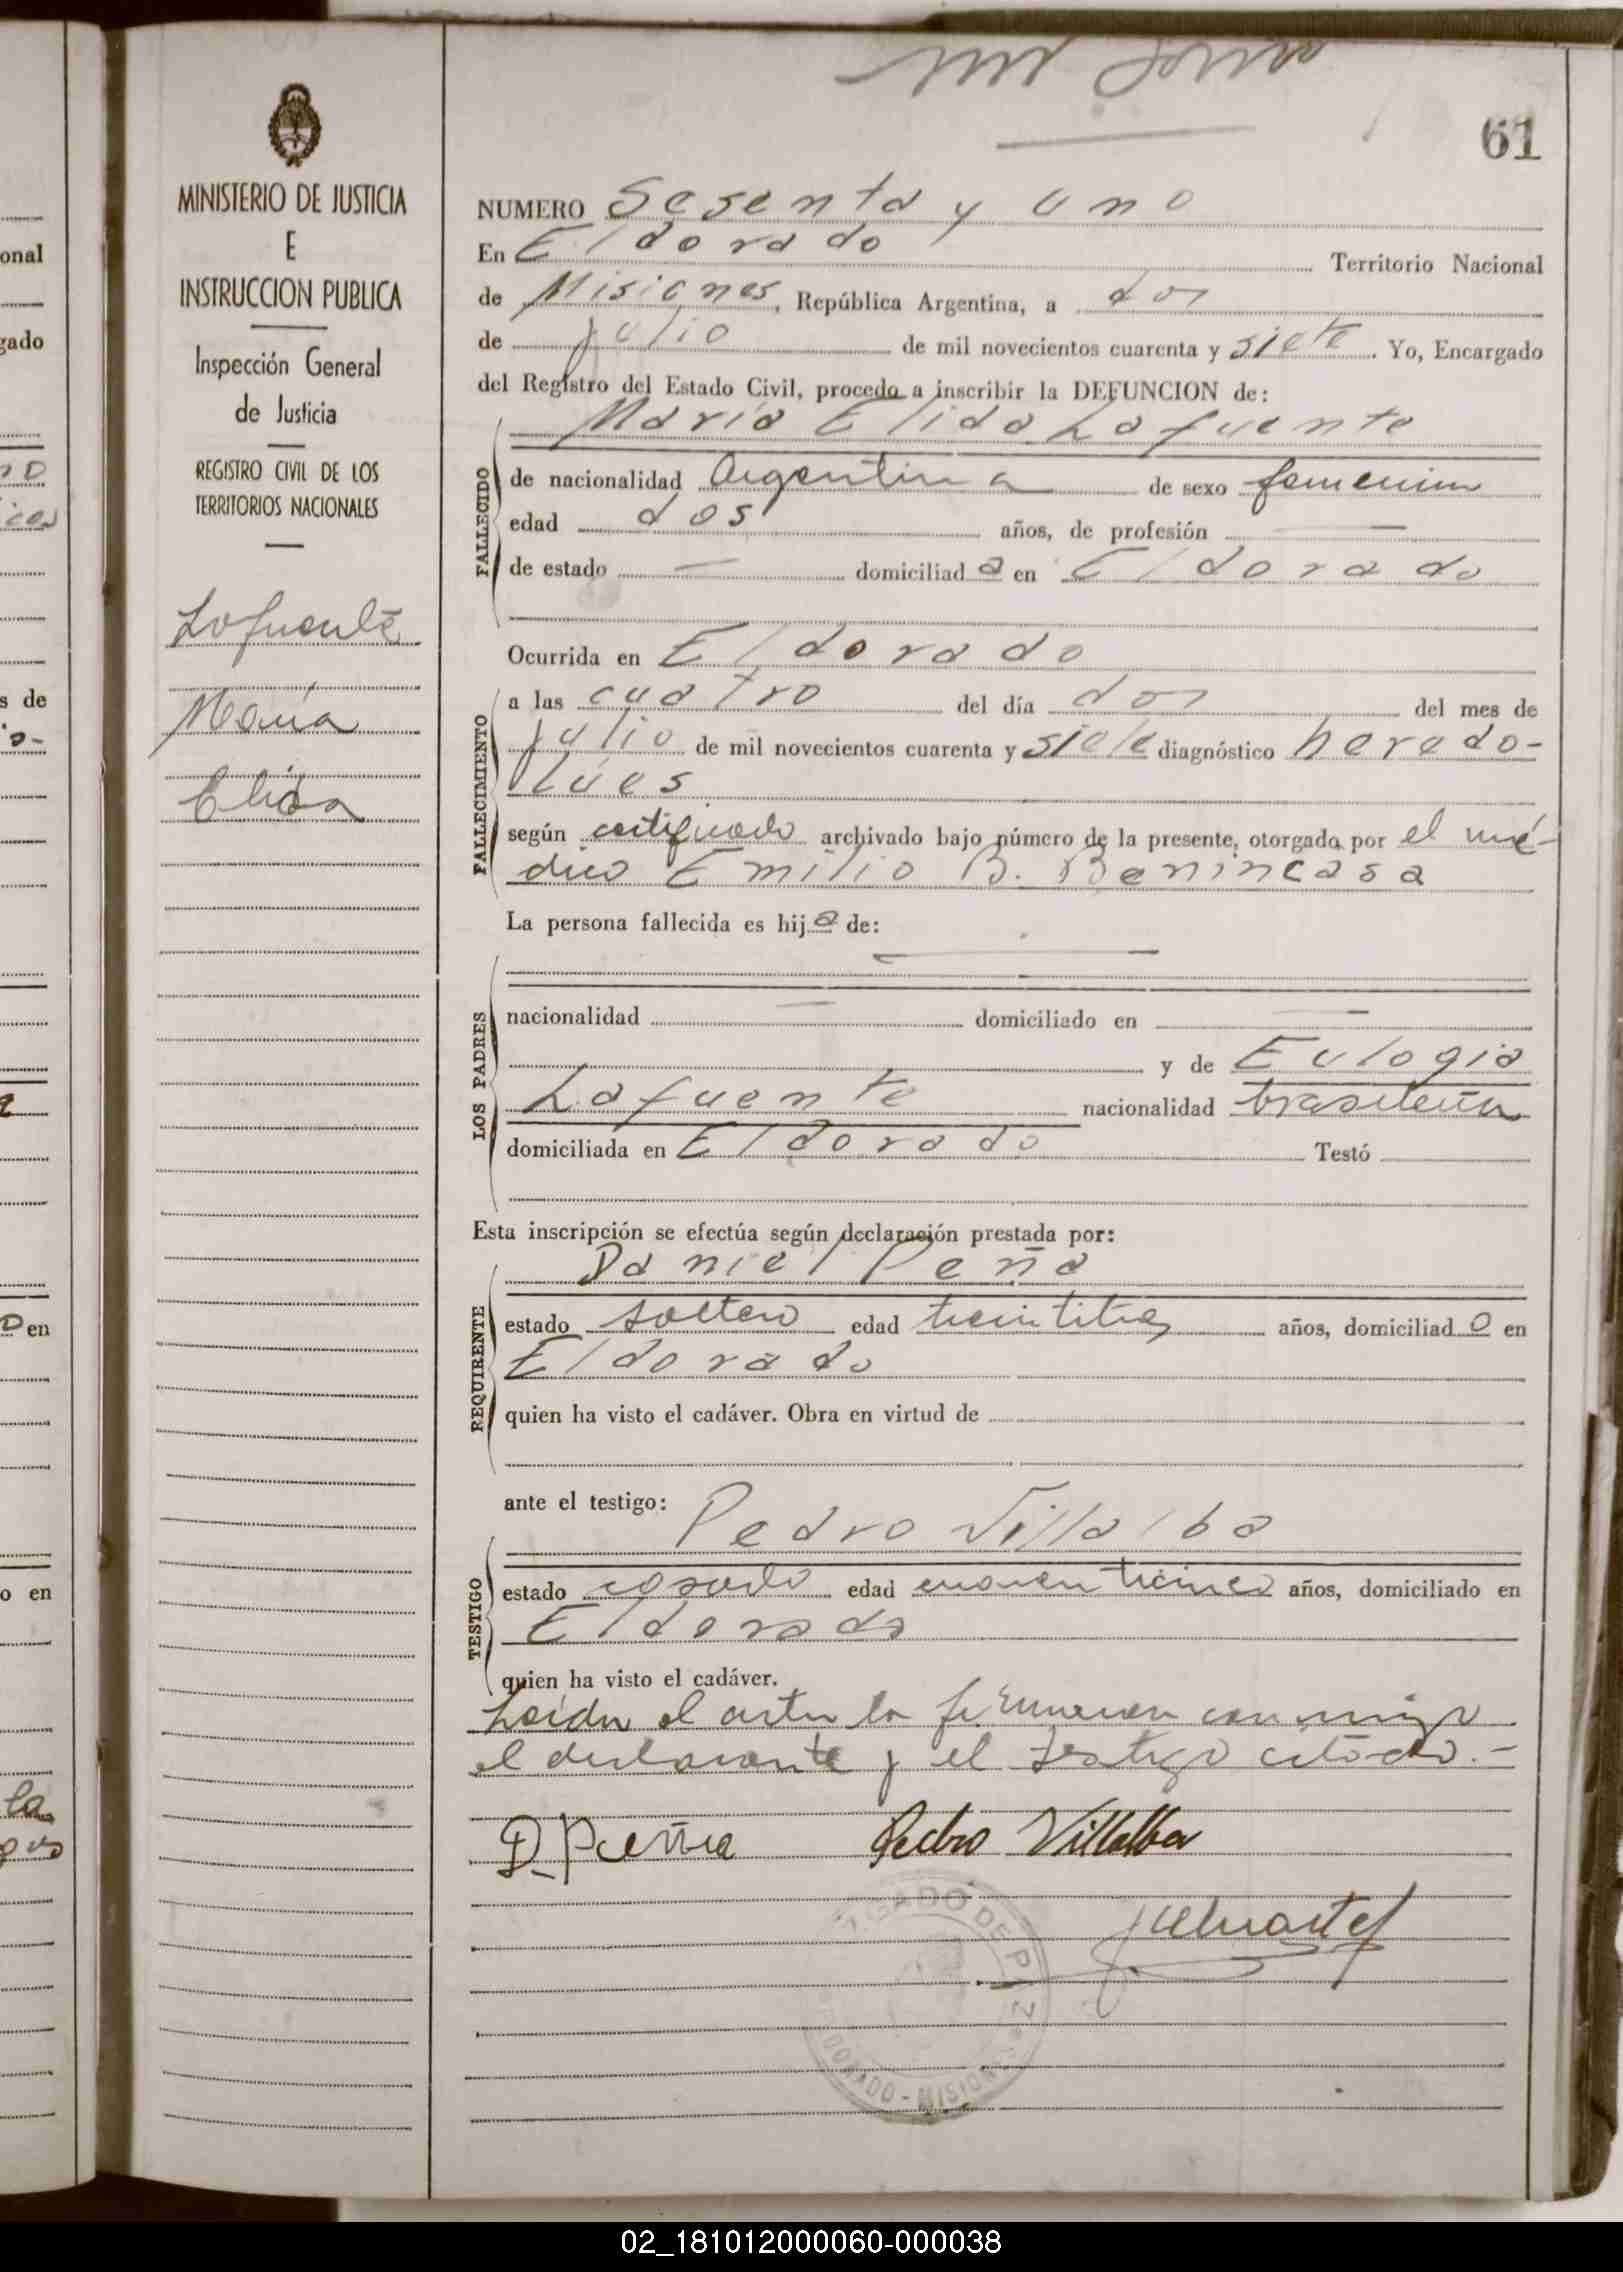 61
MINISTERIO DE JUSTICIA
E
INSTRUCCION PUBLICA
Inspección General
de Justicia
REGISTRO CIVIL DE LOS
TERRITORIOS NACIONALES
Lafuente
María
Elida
NUMERO Sesenta y uno
En Eldorado Territorio Nacional
de Misiones, República Argentina, a dos
de julio de mil novecientos cuarenta y siete. Yo, Encargado
del Registro del Estado Civil, procedo a inscribir la DEFUNCION de:
María Elida Lafuente
FALLECIDO
de nacionalidad Argentina de sexo femenino
edad dos años, de profesión —
de estado — domiciliad a en Eldorado
Ocurrida en Eldorado
FALLECIMIENTO
a las cuatro del día dos del mes de
julio de mil novecientos cuarenta y siete diagnóstico heredo-
lúes
según certificado archivado bajo número de la presente, otorgado por el mé-
dico Emilio B. Benincasa
La persona fallecida es hij a de:
—
LOS PADRES
nacionalidad — domiciliado en —
y de Eulogia
Lafuente nacionalidad brasileña
domiciliada en Eldorado Testó
Esta inscripción se efectúa según declaración prestada por:
Daniel Peña
REQUIRENTE
estado soltero edad treintitres años, domiciliad o en
Eldorado
quien ha visto el cadáver. Obra en virtud de
ante el testigo:
Pedro Villalba
TESTIGO
estado casado edad cuarenticinco años, domiciliado en
Eldorado
quien ha visto el cadáver.
Leída el acta la firmaron conmigo
el declarante y el testigo citado.-
D. Peña Pedro Villalba
DE PAZ
DORADO - MISIONES
onal
gado
s de
en
o en
la
02_181012000060-000038